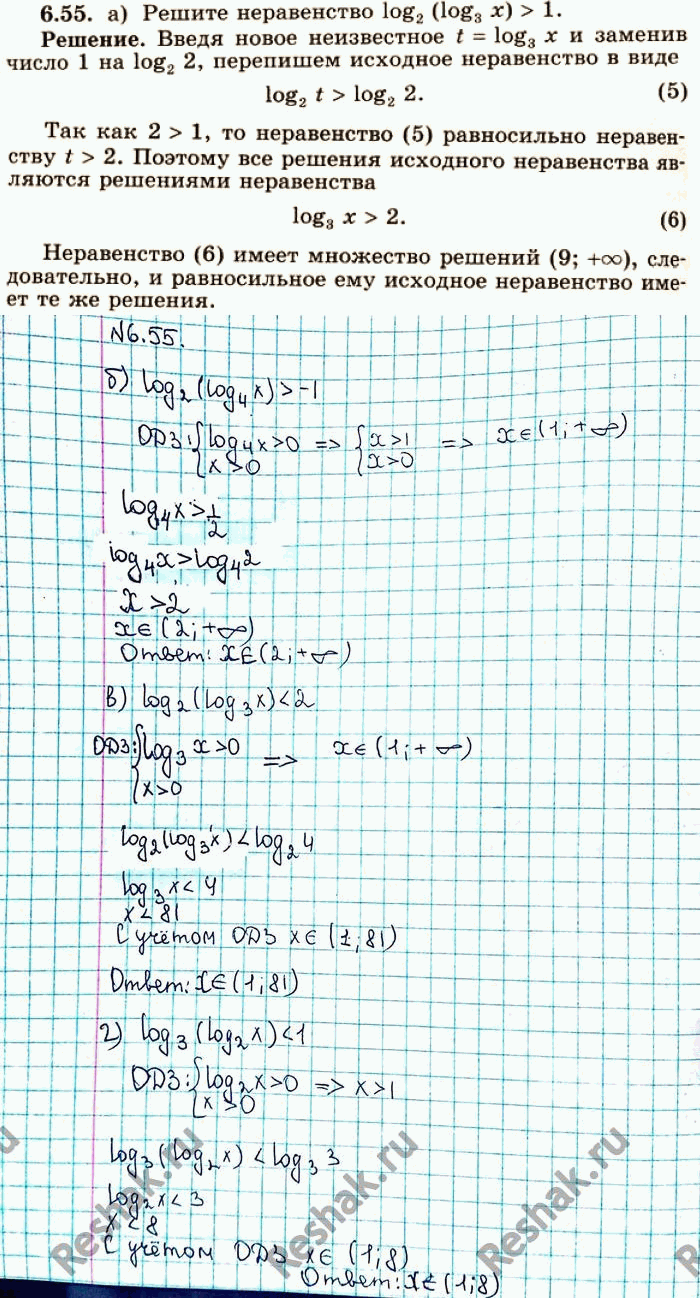 6.55. а) Решите неравенство log₂ (log₃ x) > 1.
Решение. Введя новое неизвестное t = log₃ x и заменив
число 1 на log₂ 2, перепишем исходное неравенство в виде
log₂ t > log₂ 2. (5)
Так как 2 > 1, то неравенство (5) равносильно неравен-
ству t > 2. Поэтому все решения исходного неравенства яв-
ляются решениями неравенства
log₃ x > 2. (6)
Неравенство (6) имеет множество решений (9; +∞), сле-
довательно, и равносильное ему исходное неравенство име-
ет те же решения.
N6.55.
б) log₂(log₄x)>-1
ОДЗ: { log₄x>0 => { x>1 => x∈(1;+∞)
x>0 x>0
log₄x>1/2
log₄x>log₄2
x>2
x∈(2;+∞)
Ответ: x∈(2;+∞)
в) log₂(log₃x)<2
ОДЗ: { log₃x>0 => x∈(1;+∞)
x>0
log₂(log₃x)<log₂4
log₃x<4
x<81
С учётом ОДЗ x∈(1;81)
Ответ: x∈(1;81)
г) log₃(log₂x)<1
ОДЗ: { log₂x>0 => x>1
x>0
log₃(log₂x)<log₃3
log₂x<3
x<8
С учётом ОДЗ x∈(1;8)
Ответ: x∈(1;8)
Reshak.ru
Reshak.ru
Reshak.ru